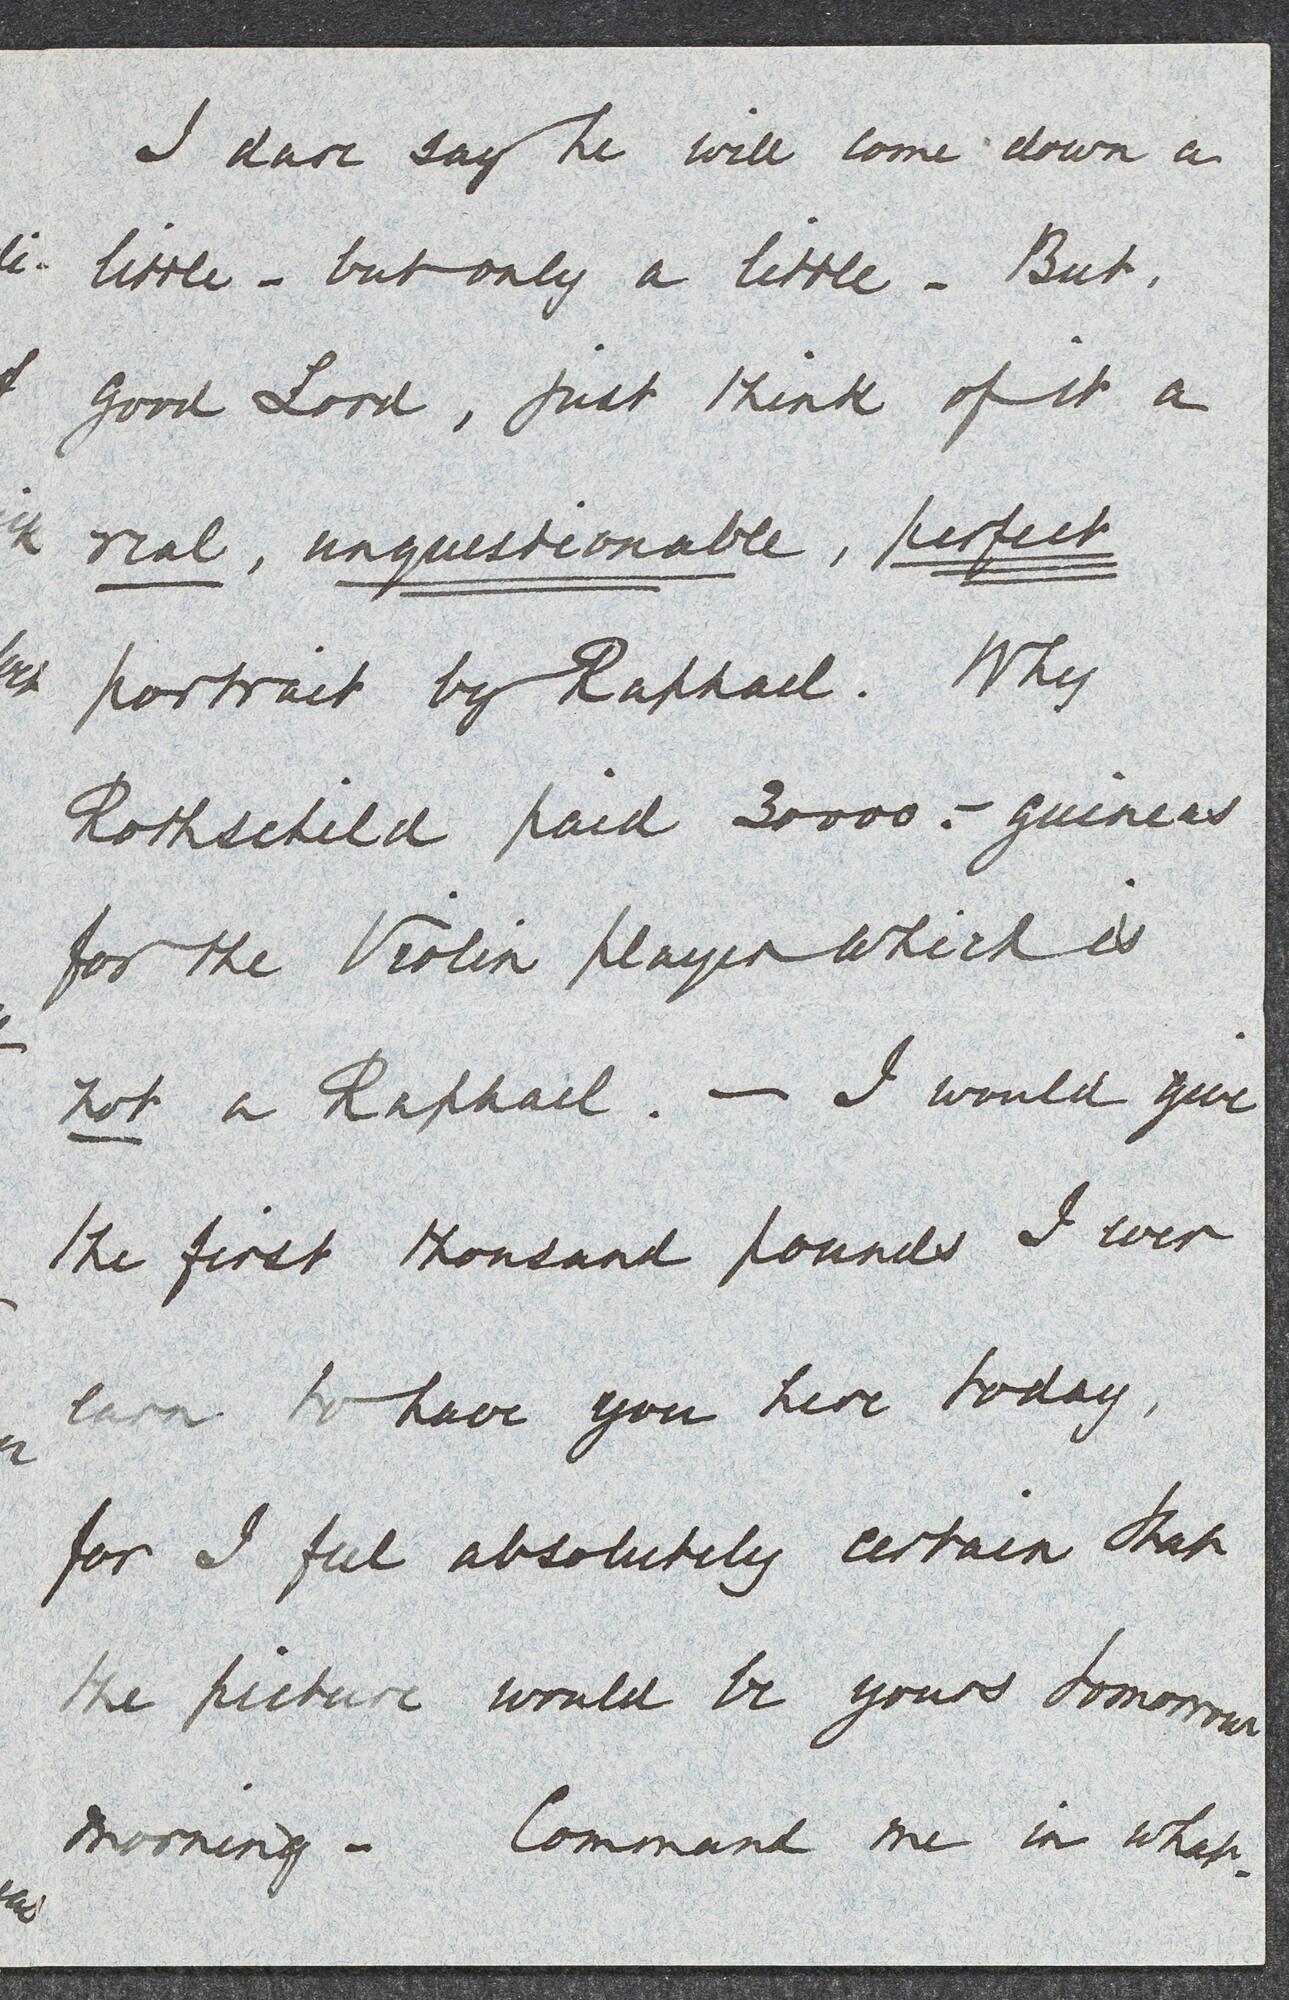 I dare say he will come down a
little - but only a little - But,
good Lord, just think of it a
real, unquestionable, perfect
portrait by Raphael. Why
Rothschild paid 30000.- guineas
for the Violin player which is
not a Raphael. — I would give
the first thousand pounds I ever
earn to have you here today,
for I feel absolutely certain that
the picture would be yours tomorrow
morning - Command me in what-